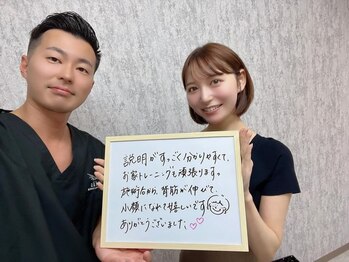 説明がすっごく分かりやすくて、
お家トレーニングも頑張ります。
施術后から、背筋が伸びて、
小顔になれて嬉しいです
ありがとうございました。